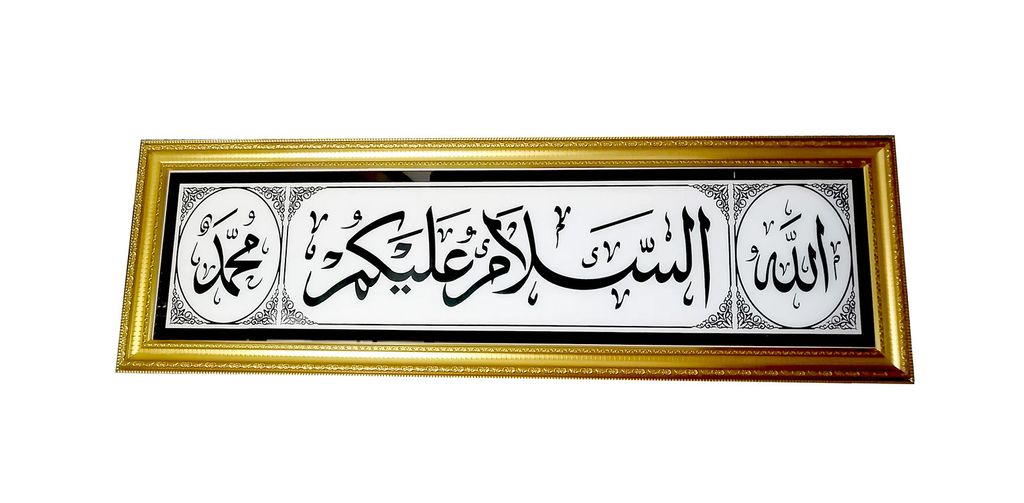 الله
السَّلَامُ عَلَيْكُمْ
مُحَمَّدٌ